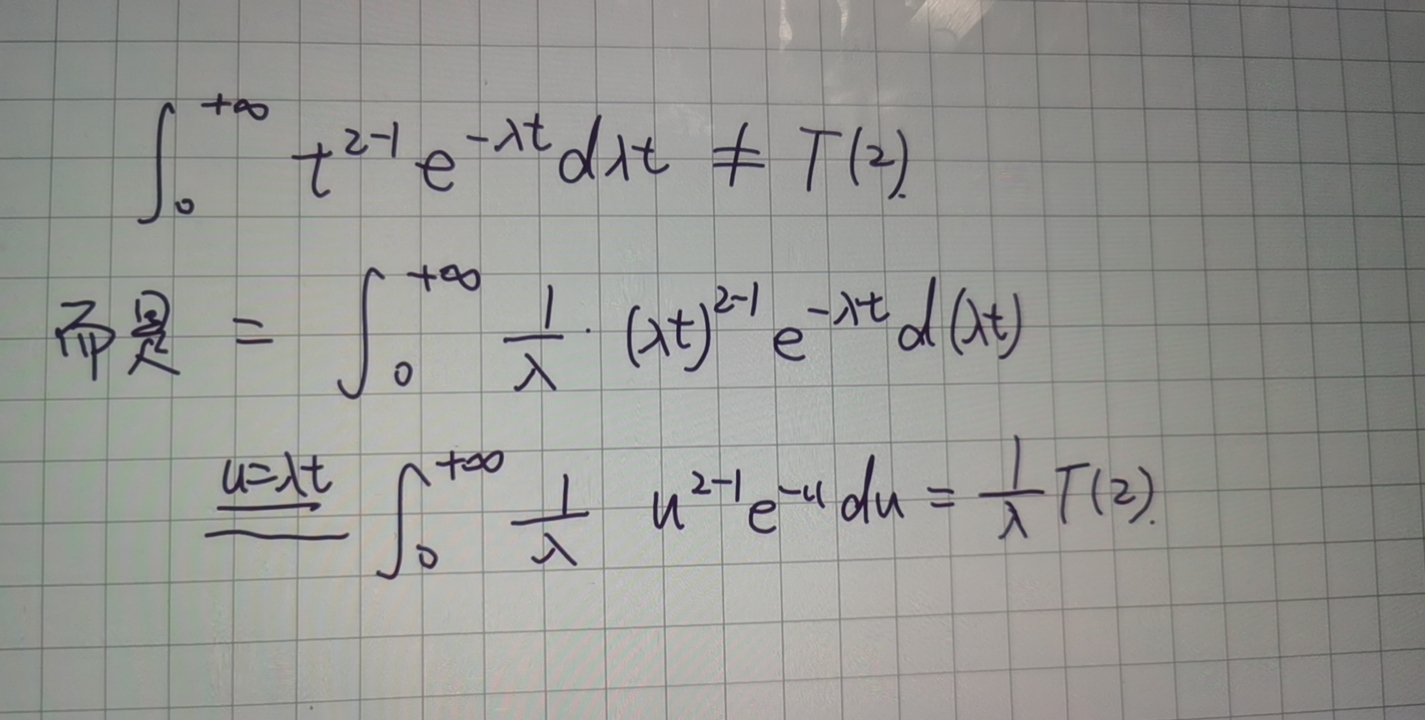 ∫₀^{+∞} t^{2-1} e^{-λt} dλt ≠ T(2).
而是 = ∫₀^{+∞} 1/λ · (λt)^{2-1} e^{-λt} d(λt)
u=λt ∫₀^{+∞} 1/λ u^{2-1} e^{-u} du = 1/λ T(2).